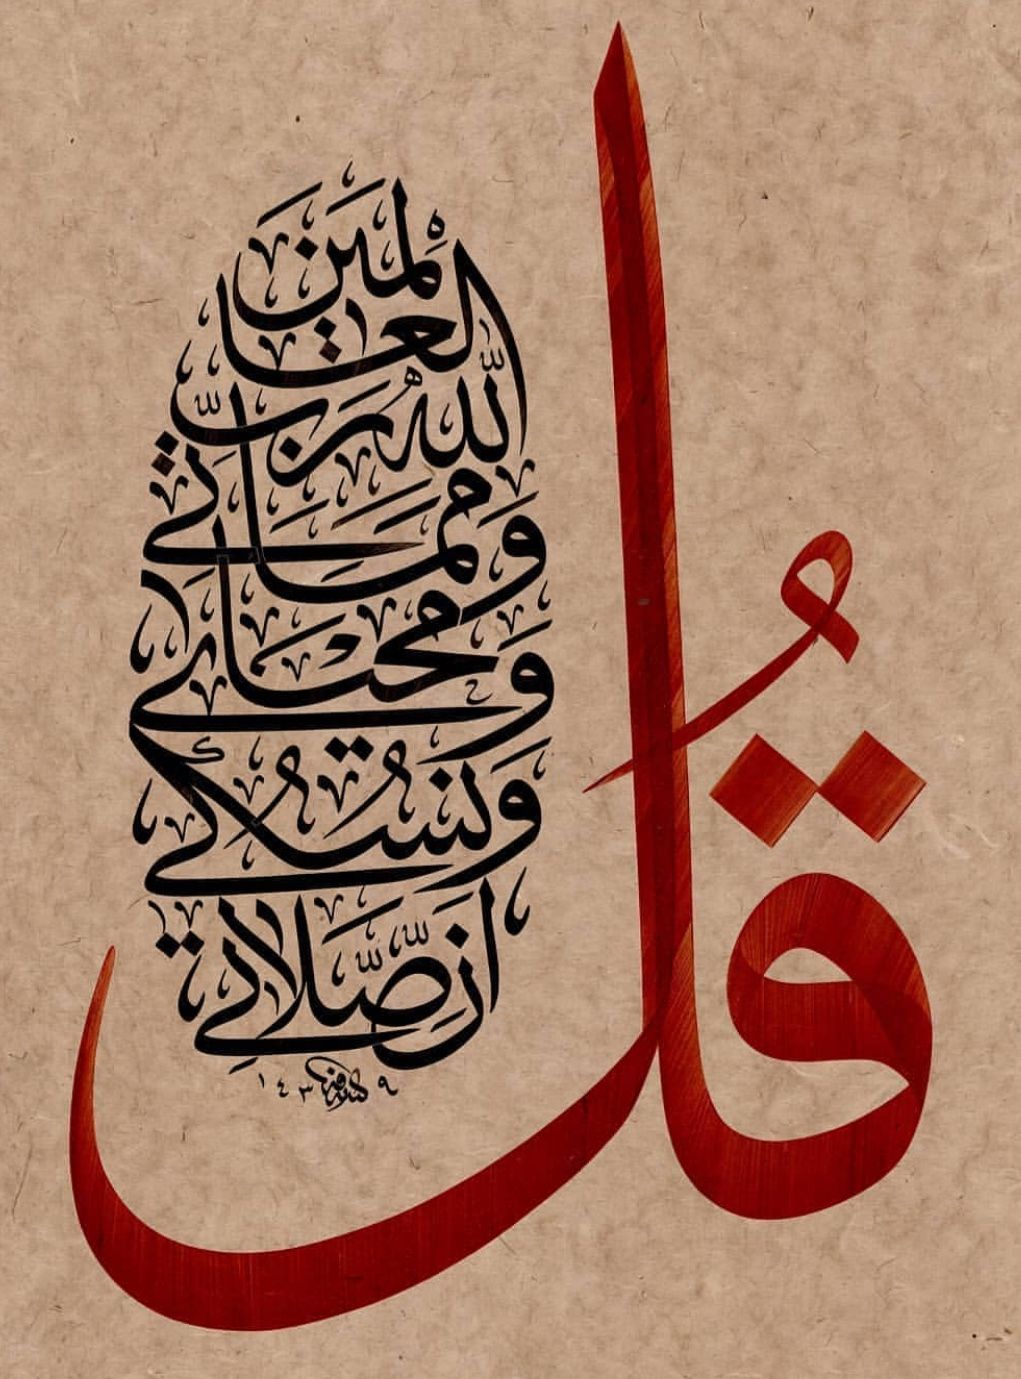 قُل
إِنَّ صَّلَاتِي
وَنُسُكِي
وَمَحْيَايَ
وَمَمَاتِي
لِلَّهِ رَبِّ
الْعَالَمِينَ
١٤٣٩